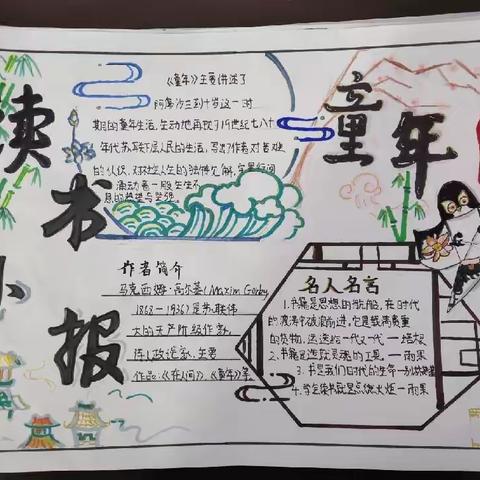 读
书
小
报
童年
《童年》主要讲述了
阿廖沙三到十岁这一时
期的童年生活,生动地再现了19世纪七八十
年代苏联下层人民的生活,写出了作者对苦难
的认识,对社会人生的独特见解,字里行间
涌动着一股生生不
息的热望与坚强。
作者简介
马克西姆·高尔基(Maxim Gorky
1868-1936)是苏联伟
大的无产阶级作家,
诗人,政论家,主要
作品:《在人间》,《童年》等
名人名言
1.书籍是思想的航船,在时代
的波涛中破浪前进,它是载满贵重
的货物,送给一代又一代 — 培根
2.书籍是造就灵魂的工具。— 雨果
3.书是我们时代的生命 — 别林斯基
4.学会读书就是点燃火炬 — 雨果